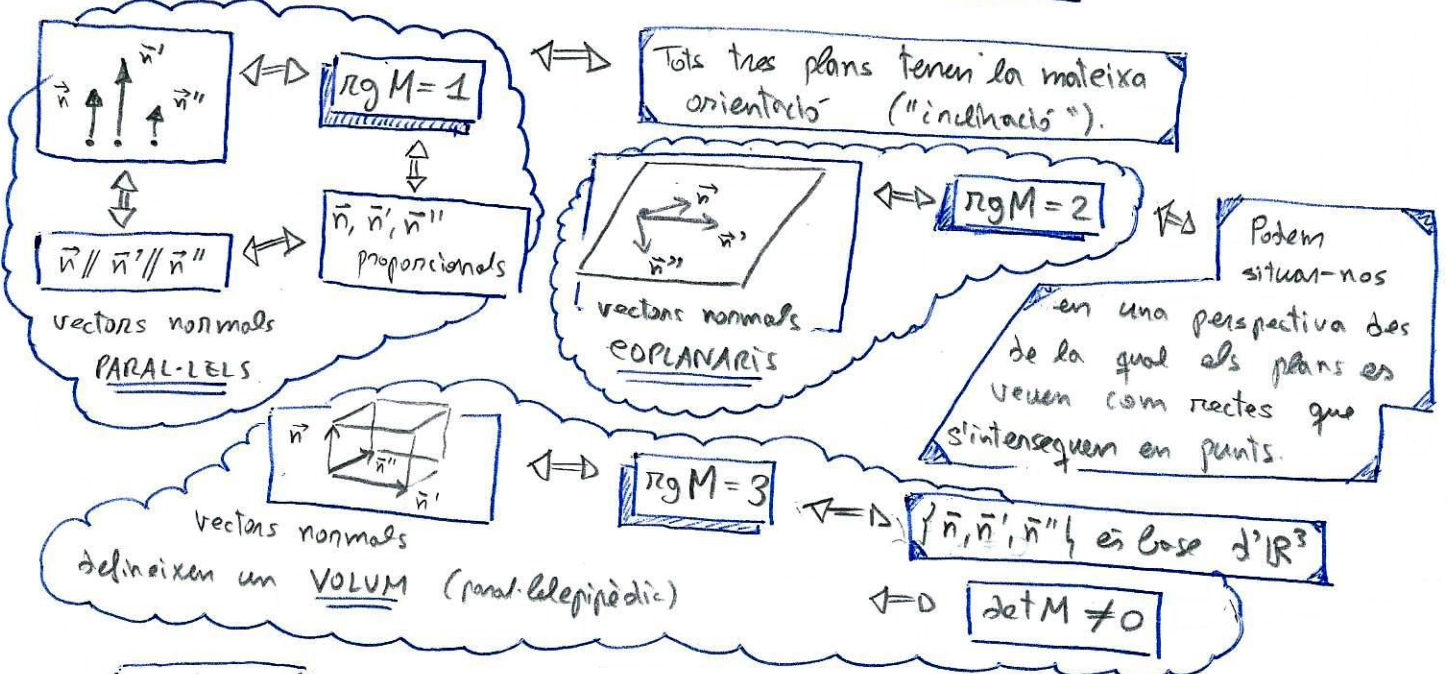 n⃗ n⃗' n⃗''
⇔
rg M = 1
⇔
Tots tres plans tenen la mateixa
orientació ("inclinació").
⇕
⇕
n⃗ // n⃗' // n⃗''
⇔
n⃗, n⃗', n⃗''
proporcionals
vectors normals
PARAL·LELS
n⃗
n⃗'
n⃗''
vectors normals
COPLANARIS
⇔
rg M = 2
⇔
Podem
situar-nos
en una perspectiva des
de la qual els plans es
veuen com rectes que
s'intersequen en punts.
n⃗
n⃗''
n⃗'
vectors normals
defineixen un VOLUM (paral·lelepipèdic)
⇔
rg M = 3
⇔
{n⃗, n⃗', n⃗''} és base d'ℝ³
⇔
det M ≠ 0